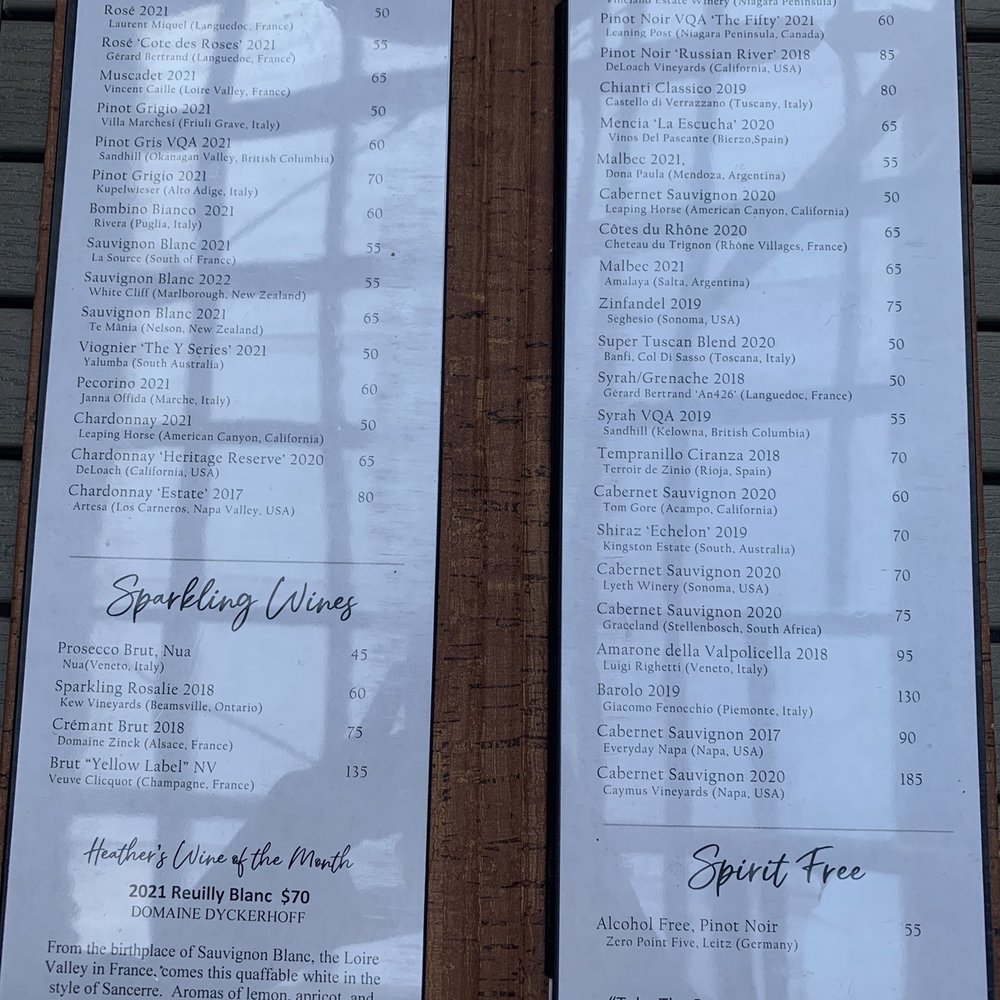 Rosé 2021 50
Laurent Miquel (Languedoc, France)
Rosé ‘Cote des Roses’ 2021 55
Gérard Bertrand (Languedoc, France)
Muscadet 2021 65
Vincent Caille (Loire Valley, France)
Pinot Grigio 2021 50
Villa Marchesi (Friuli Grave, Italy)
Pinot Gris VQA 2021 60
Sandhill (Okanagan Valley, British Columbia)
Pinot Grigio 2021 70
Kupelwieser (Alto Adige, Italy)
Bombino Bianco 2021 60
Rivera (Puglia, Italy)
Sauvignon Blanc 2021 55
La Source (South of France)
Sauvignon Blanc 2022 55
White Cliff (Marlborough, New Zealand)
Sauvignon Blanc 2021 65
Te Mānia (Nelson, New Zealand)
Viognier ‘The Y Series’ 2021 50
Yalumba (South Australia)
Pecorino 2021 60
Janna Offida (Marche, Italy)
Chardonnay 2021 50
Leaping Horse (American Canyon, California)
Chardonnay ‘Heritage Reserve’ 2020 65
DeLoach (California, USA)
Chardonnay ‘Estate’ 2017 80
Artesa (Los Carneros, Napa Valley, USA)
Sparkling Wines
Prosecco Brut, Nua 45
Nua(Veneto, Italy)
Sparkling Rosalie 2018 60
Kew Vineyards (Beamsville, Ontario)
Crémant Brut 2018 75
Domaine Zinck (Alsace, France)
Brut “Yellow Label” NV 135
Veuve Clicquot (Champagne, France)
Heather's Wine of the Month
2021 Reuilly Blanc $70
DOMAINE DYCKERHOFF
From the birthplace of Sauvignon Blanc, the Loire
Valley in France, comes this quaffable white in the
style of Sancerre. Aromas of lemon, apricot, and
Vineland Estate Winery (Niagara Peninsula)
Pinot Noir VQA ‘The Fifty’ 2021 60
Leaning Post (Niagara Peninsula, Canada)
Pinot Noir ‘Russian River’ 2018 85
DeLoach Vineyards (California, USA)
Chianti Classico 2019 80
Castello di Verrazzano (Tuscany, Italy)
Mencia ‘La Escucha’ 2020 65
Vinos Del Paseante (Bierzo,Spain)
Malbec 2021, 55
Dona Paula (Mendoza, Argentina)
Cabernet Sauvignon 2020 50
Leaping Horse (American Canyon, California)
Côtes du Rhône 2020 65
Cheteau du Trignon (Rhône Villages, France)
Malbec 2021 65
Amalaya (Salta, Argentina)
Zinfandel 2019 75
Seghesio (Sonoma, USA)
Super Tuscan Blend 2020 50
Banfi, Col Di Sasso (Toscana, Italy)
Syrah/Grenache 2018 50
Gérard Bertrand ‘An426’ (Languedoc, France)
Syrah VQA 2019 55
Sandhill (Kelowna, British Columbia)
Tempranillo Ciranza 2018 70
Terroir de Zinio (Rioja, Spain)
Cabernet Sauvignon 2020 60
Tom Gore (Acampo, California)
Shiraz ‘Echelon’ 2019 70
Kingston Estate (South, Australia)
Cabernet Sauvignon 2020 70
Lyeth Winery (Sonoma, USA)
Cabernet Sauvignon 2020 75
Graceland (Stellenbosch, South Africa)
Amarone della Valpolicella 2018 95
Luigi Righetti (Veneto, Italy)
Barolo 2019 130
Giacomo Fenocchio (Piemonte, Italy)
Cabernet Sauvignon 2017 90
Everyday Napa (Napa, USA)
Cabernet Sauvignon 2020 185
Caymus Vineyards (Napa, USA)
Spirit Free
Alcohol Free, Pinot Noir 55
Zero Point Five, Leitz (Germany)